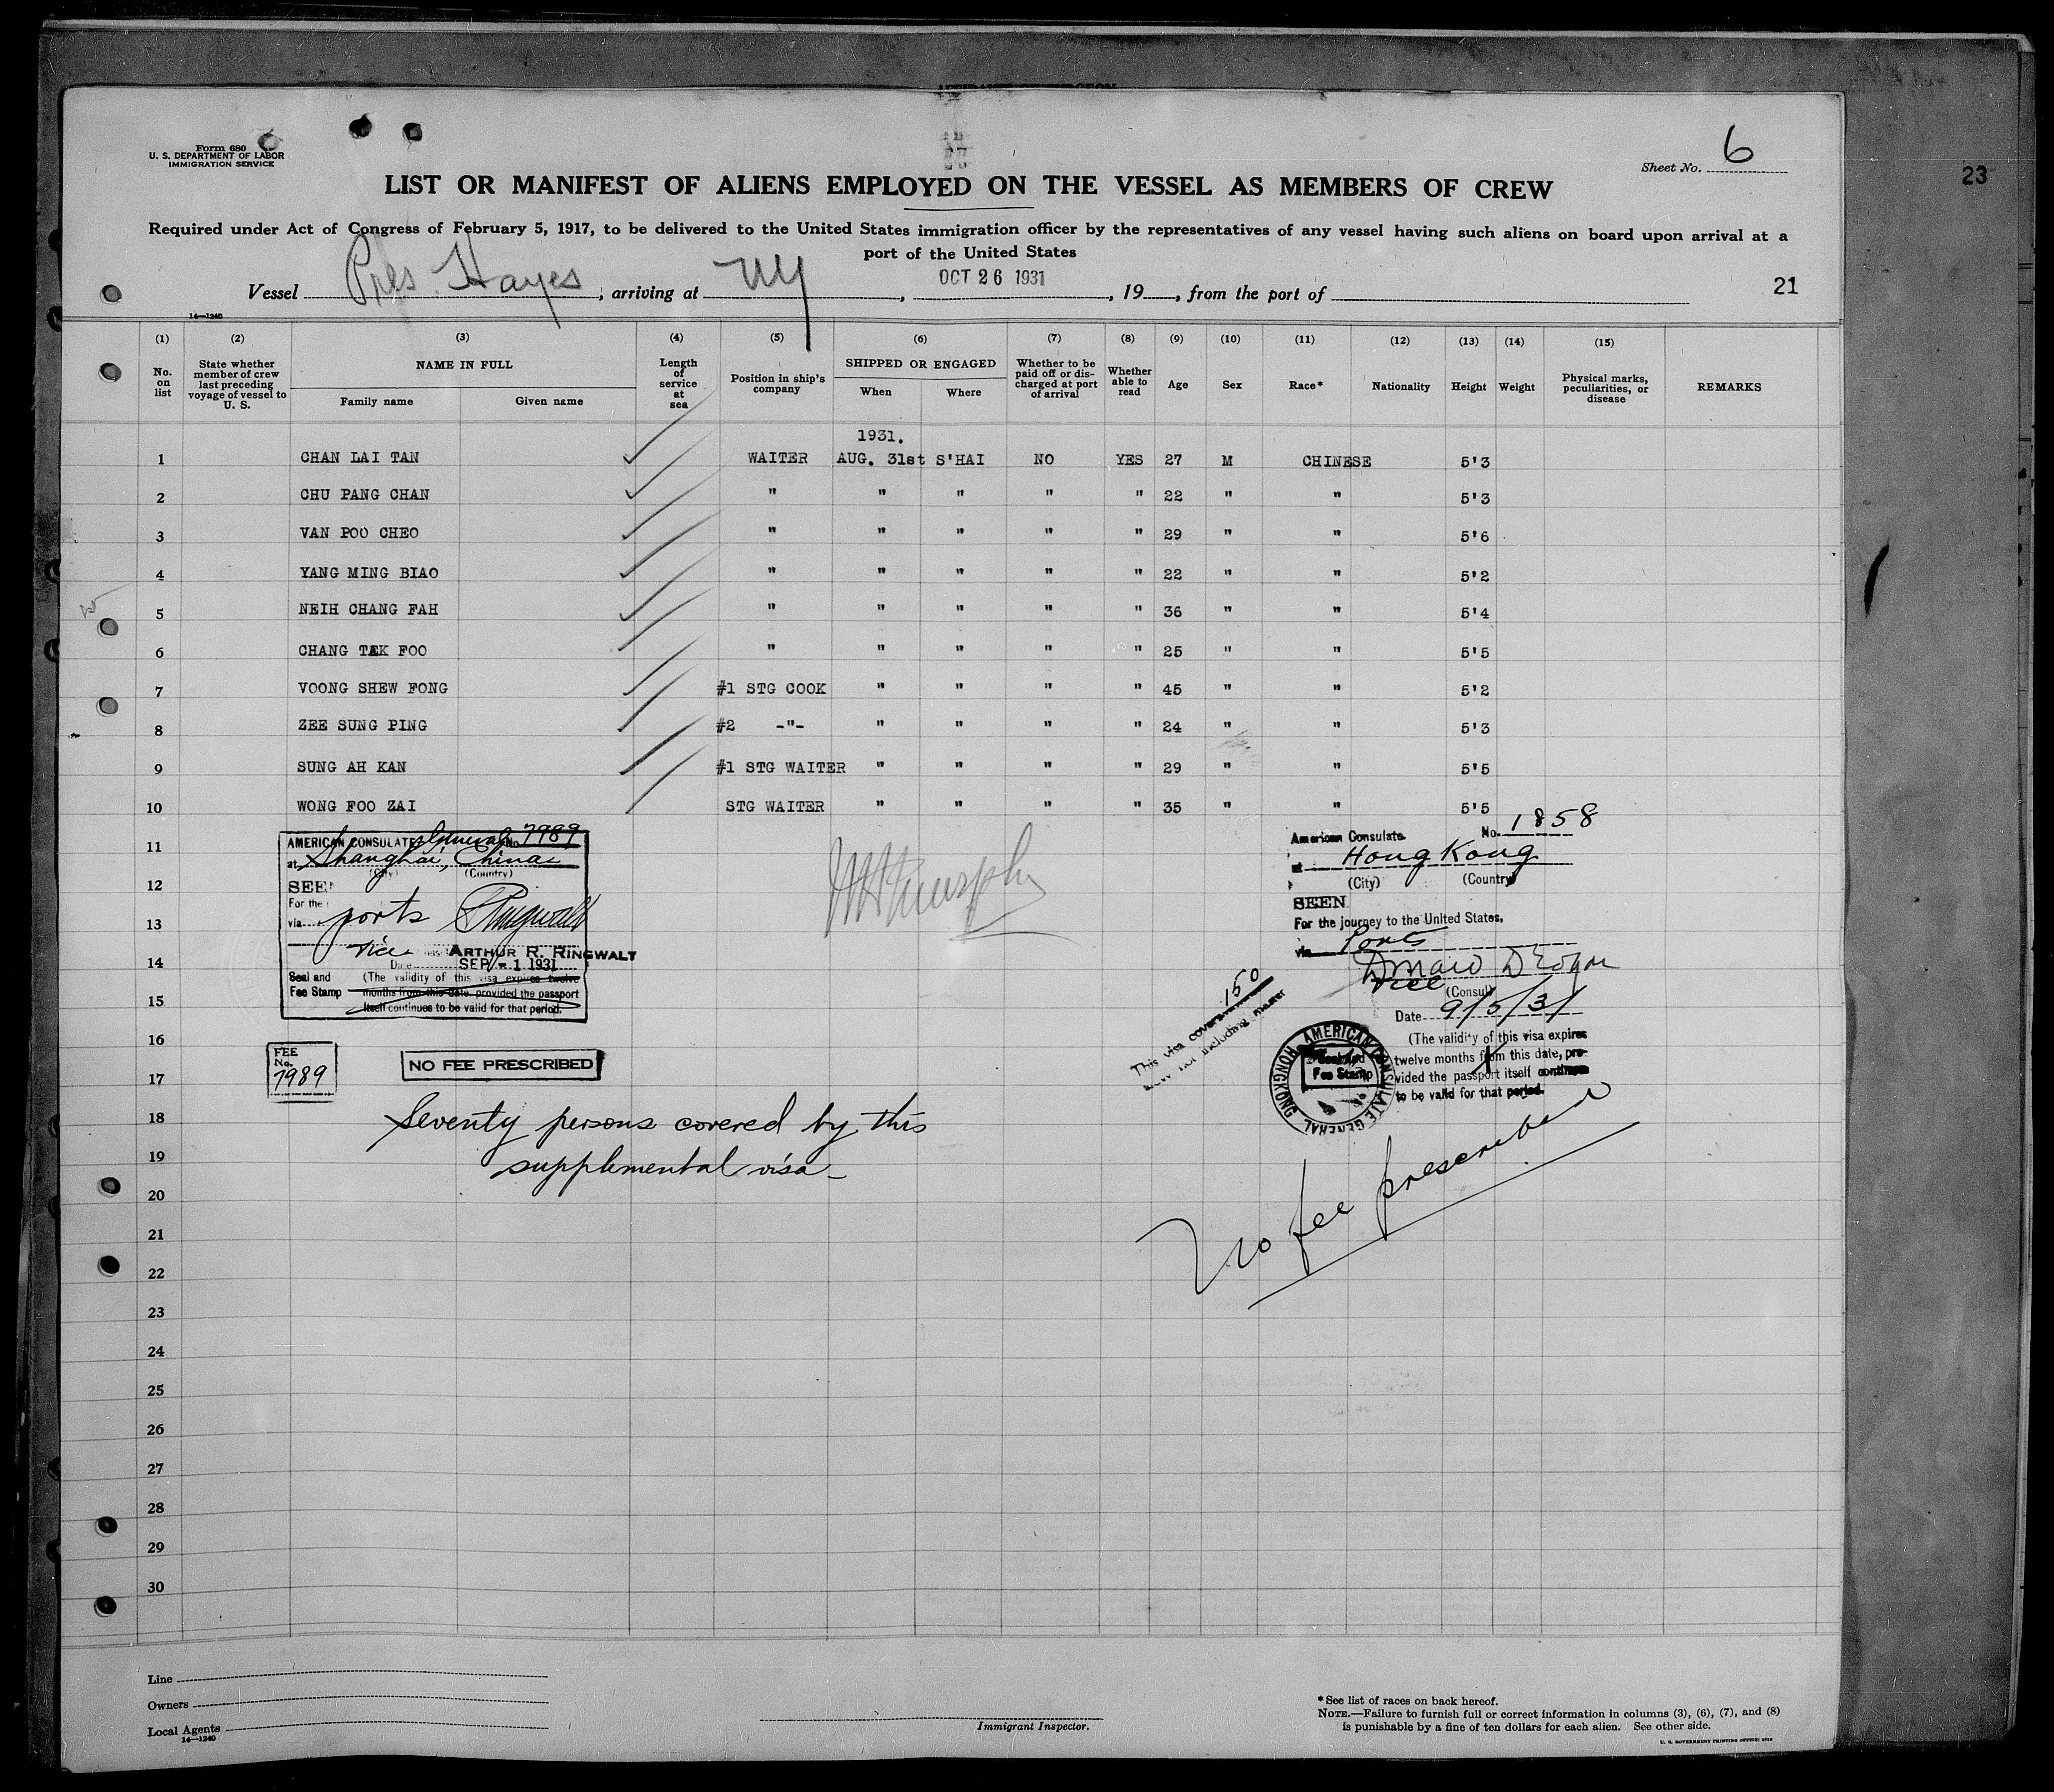 Form 680
U. S. DEPARTMENT OF LABOR
IMMIGRATION SERVICE
Sheet No. 6
23
LIST OR MANIFEST OF ALIENS EMPLOYED ON THE VESSEL AS MEMBERS OF CREW
Required under Act of Congress of February 5, 1917, to be delivered to the United States immigration officer by the representatives of any vessel having such aliens on board upon arrival at a
port of the United States
Vessel Pres. Hayes, arriving at NY, OCT 26 1931, 19, from the port of
21
14—1240
(1) (2) (3) (4) (5) (6) (7) (8) (9) (10) (11) (12) (13) (14) (15)
No. on list
State whether member of crew last preceding voyage of vessel to U. S.
NAME IN FULL
Family name Given name
Length of service at sea
Position in ship's company
SHIPPED OR ENGAGED
When Where
Whether to be paid off or discharged at port of arrival
Whether able to read
Age Sex Race* Nationality Height Weight
Physical marks, peculiarities, or disease
REMARKS
1931.
1 CHAN LAI TAN WAITER AUG. 31st S'HAI NO YES 27 M CHINESE 5'3
2 CHU PANG CHAN " " " " " 22 " " 5'3
3 VAN POO CHEO " " " " " 29 " " 5'6
4 YANG MING BIAO " " " " " 22 " " 5'2
5 NEIH CHANG FAH " " " " " 36 " " 5'4
6 CHANG TEK FOO " " " " " 25 " " 5'5
7 VOONG SHEW FONG #1 STG COOK " " " " 45 " " 5'2
8 ZEE SUNG PING #2 -"- " " " " 24 " " 5'3
9 SUNG AH KAN #1 STG WAITER " " " " 29 " " 5'5
10 WONG FOO ZAI STG WAITER " " " " 35 " " 5'5
11
12
13
14
15
16
17
18
19
20
21
22
23
24
25
26
27
28
29
30
AMERICAN CONSULATE General No. 7989
at Shanghai, China
(City) (Country)
SEEN
For the
via ports
Vice ARTHUR R. RINGWALT
Date SEP -1 1931
Seal and Fee Stamp
(The validity of this visa expires twelve
months from this date, provided the passport
itself continues to be valid for that period.
FEE
No.
7989
NO FEE PRESCRIBED
Seventy persons covered by this
supplemental visa
American Consulate No. 1858
at Hong Kong
(City) (Country)
SEEN
For the journey to the United States,
via Ports
Vice
(Consul)
Date 9/5/31
(The validity of this visa expires
twelve months from this date, pro-
vided the passport itself continues
to be valid for that period.
This visa covers 150
crew not including master
AMERICAN CONSULATE GENERAL HONGKONG
Seal and
Fee Stamp
No fee prescribed
Line
Owners
Local Agents
14—1240
Immigrant Inspector.
* See list of races on back hereof.
NOTE.—Failure to furnish full or correct information in columns (3), (6), (7), and (8)
is punishable by a fine of ten dollars for each alien. See other side.
U. S. GOVERNMENT PRINTING OFFICE: 1929